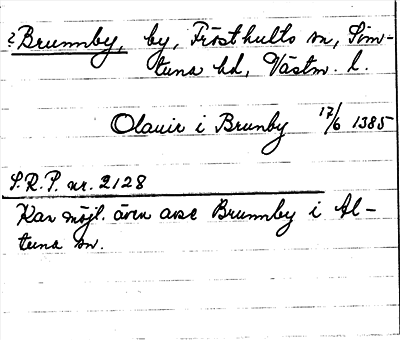 ? Brunnby, by, Frösthults sn, Sim-
tuna hd, Västm. l.
Olauir i Brunby 17/6 1385
S.R.P. nr. 2128
Kan möjl. även avse Brunnby i Al-
tuna sn.